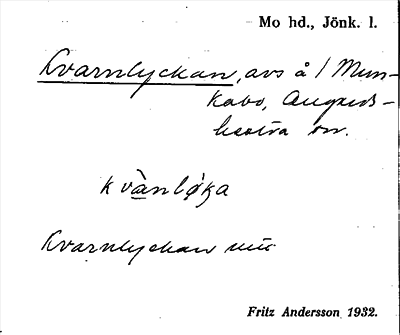 Mo hd., Jönk. l.
Kvarnlyckan, avs å / Mun-
kabo, Angerds-
hestra sn.
kvànlø̀ka
Kvarnlyckan
Fritz Andersson 1932.